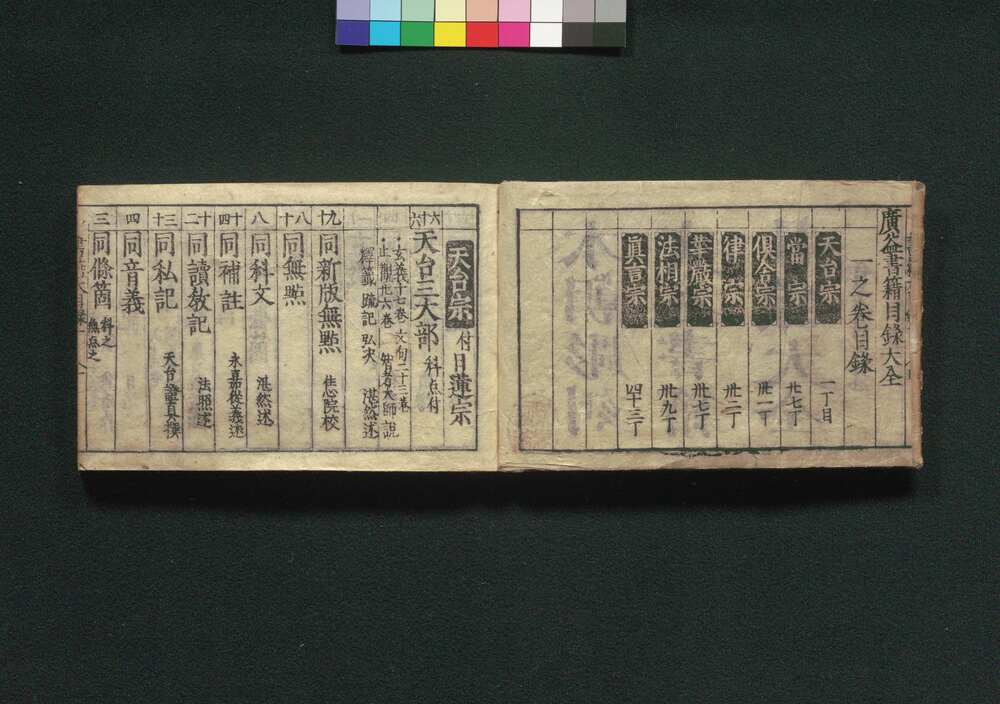 廣益書籍目錄大全
一之卷目錄
天台宗 一丁目
當宗 廿七丁
俱舍宗 卅一丁
律宗 卅二丁
華嚴宗 卅七丁
法相宗 卅九丁
眞言宗 四十三丁
天台宗 付日蓮宗
六十六 天台三大部 科点付
玄義十七卷 文句二十三卷
止觀廿六卷 智者大師說
釋籤 疏記 弘决 湛然述
十九 同新版無點 恵心院校
十八 同無點
八 同科文 湛然述
四十 同補註 永嘉從義述
二十 同讀教記 法照述
十三 同私記 天台證眞撰
四 同音義
三 同條箇 科之